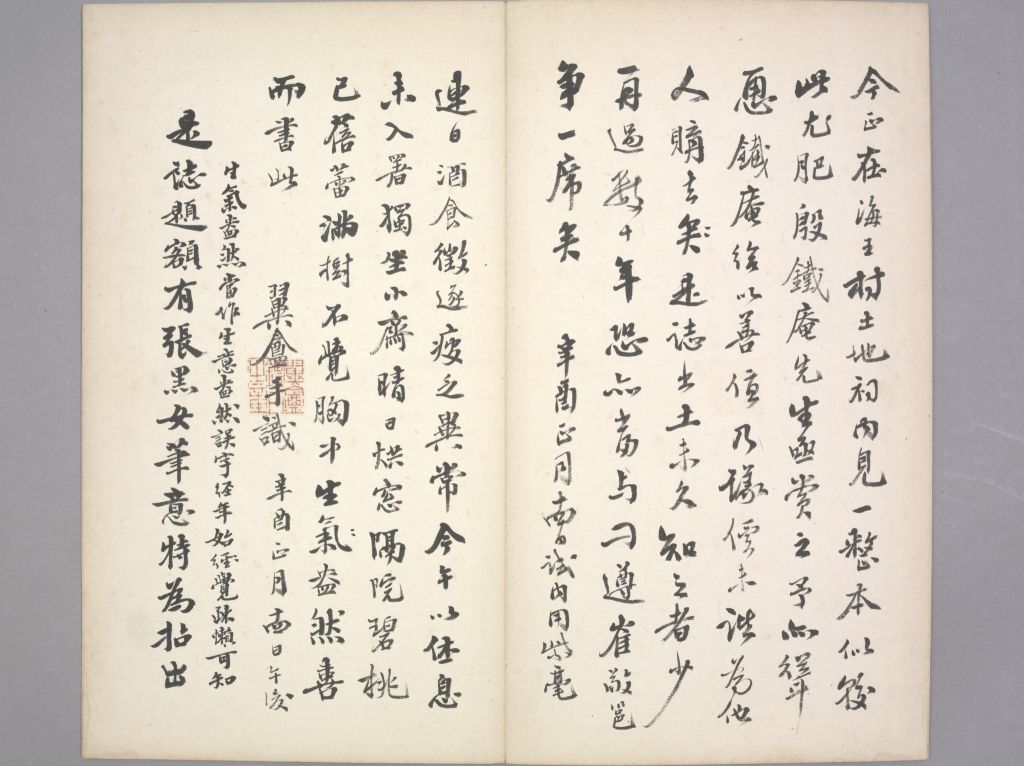 今正在海王村土地祠内見一整本似較
此尤肥殷鐵庵先生亟賞之予亦
惠鐵庵給以善値乃議價未諧為他
人購去矣是誌出土未久知之者少
再過數十年恐亦當与刁遵崔敬邕
争一席矣 辛酉正月 試内用紫毫
連日酒食徵逐疲乏異常今午以休息
未入署獨坐小齋晴日烘窓隔院碧桃
已蓓蕾滿樹不覺胸中生氣盎然喜
而書此 翼盦手識 辛酉正月 日午後
生氣盎然當作生意盎然誤字經年始經覺疎懶可知
是誌題額有張黑女筆意特為拈出